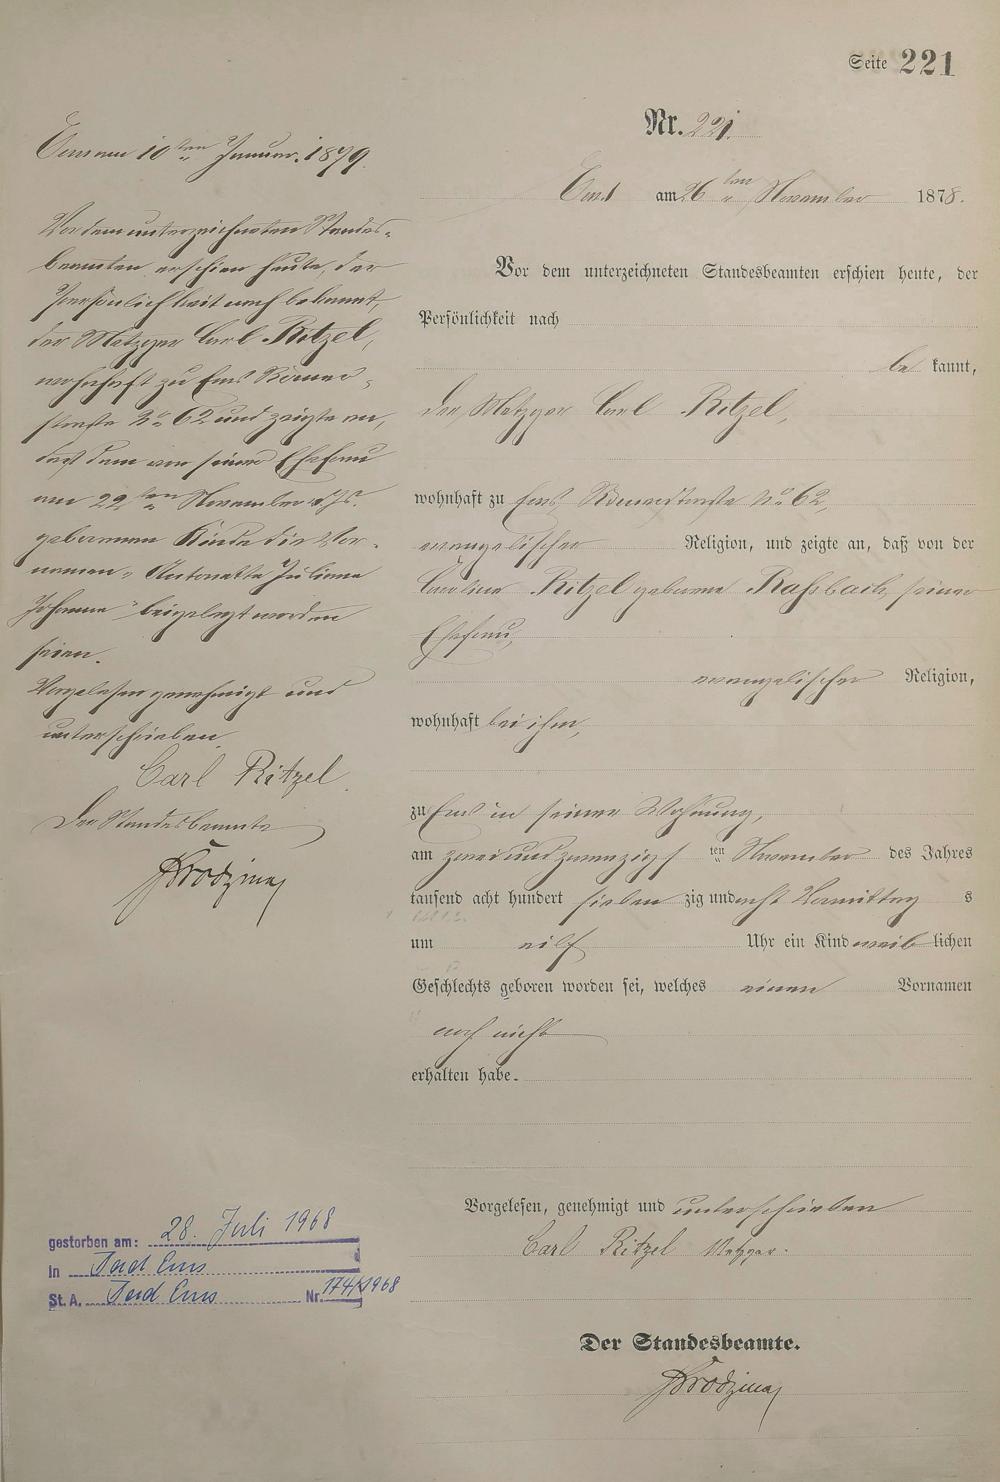 Seite 221
Nr. 221.
Ems am 26ten November 1878.
Vor dem unterzeichneten Standesbeamten erschien heute, der
Persönlichkeit nach
bekannt,
der Metzger Carl Ritzel,
wohnhaft zu Ems Römerstraße No 62,
evangelischer Religion, und zeigte an, daß von der
Caroline Ritzel geborene Raßbach, seiner
Ehefrau,
evangelischer Religion,
wohnhaft bei ihm,
zu Ems in seiner Wohnung,
am zweiundzwanzigsten November des Jahres
tausend acht hundert siebenzig und acht Vormittags
um eilf Uhr ein Kind weiblichen
Geschlechts geboren worden sei, welches einen Vornamen
noch nicht
erhalten habe.
Vorgelesen, genehmigt und unterschrieben
Carl Ritzel Metzger.
Der Standesbeamte.
Ems am 10ten Januar 1879.
Vor dem unterzeichneten Standes-
beamten erschien heute, der
Persönlichkeit nach bekannt,
der Metzger Carl Ritzel,
wohnhaft zu Ems Römer-
straße No 62 und zeigte an,
daß dem von seiner Ehefrau
am 22ten November v. Js.
geborenen Kinde die Vor-
namen "Antonette Juliane
Johanna" beigelegt worden
seien.
Vorgelesen genehmigt und
unterschrieben
Carl Ritzel.
Der Standesbeamte
gestorben am: 28. Juli 1968
in Bad Ems
St. A. Bad Ems Nr. 174/1968